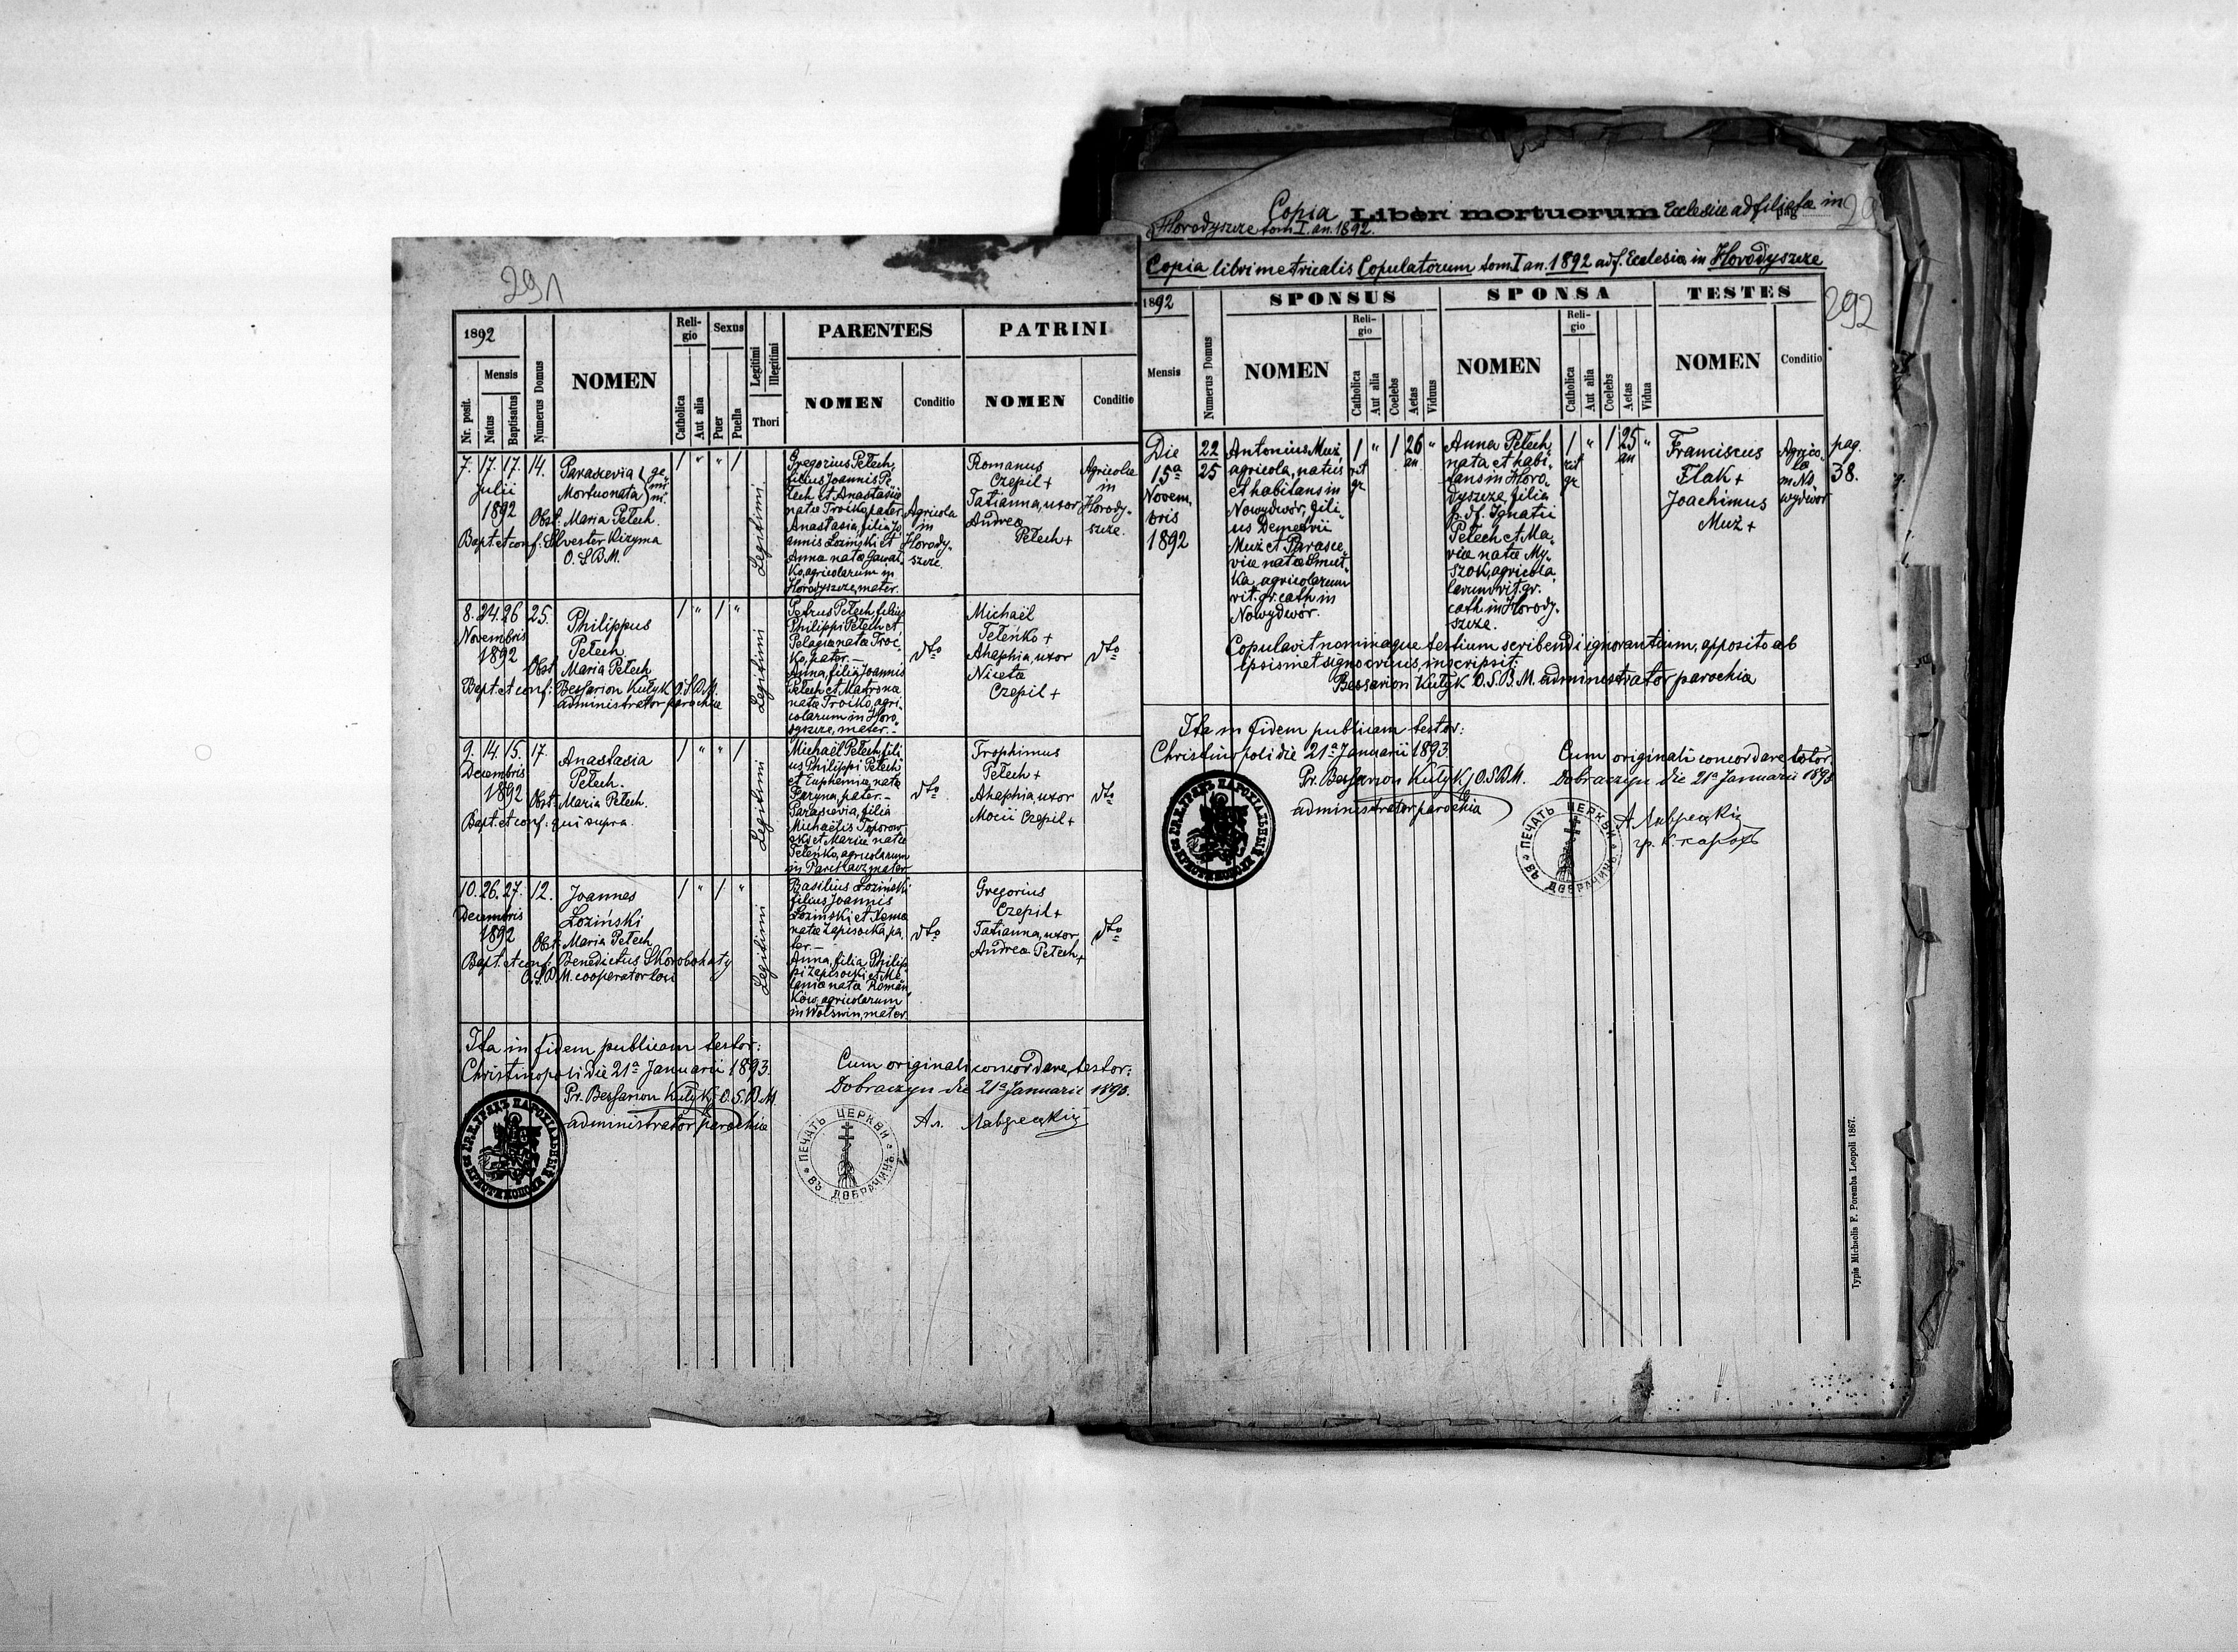 291
1892
Nr. posit.
Mensis
Natus
Baptisatus
Numerus Domus
NOMEN
Reli-
gio
Catholica
Aut alia
Sexus
Puer
Puella
Legitimi
Illegitimi
Thori
PARENTES
NOMEN
Conditio
PATRINI
NOMEN
Conditio
7. 17. 17. 14.
Julii
1892
Parascevia } ge-
Mortuonata } mi-
ni.
Obst. Maria Pełech.
Bapt. et conf: Silvester Kizyma
O.S.B.M.
1 " " 1
Legitimi
Gregorius Pełech,
filius Joannis Pe-
łech et Anastasiæ
natæ Troćko, pater.
Anastasia, filia Jo-
annis Łoziński et
Anna natæ Gawał-
ko, agricolarum in
Horodyszcze, mater.
Agricola
in
Horody-
szcze.
Romanus
Czepil +
Tatianna, uxor
Andreæ
Pełech +
Agricolæ
in
Horody-
szcze.
8. 24. 26 25.
Novembris
1892
Philippus
Pełech
Obst. Maria Pełech
Bapt. et conf: Bessarion Kułyk O.S.B.M.
administrator parochiæ
1 " 1 "
Legitimi
Petrus Pełech, filius
Philippi Pełech et
Pelagia natæ Troć-
ko, pater. —
Anna, filia Joannis
Pełech et Matrona
natæ Troćko, agri-
colarum in Horo-
dyszcze, mater. —
dto
Michaël
Teleńko +
Ahaphia, uxor
Nicetæ
Czepil +
dto
9. 14. 15. 17.
Decembris
1892
Anastasia
Pełech.
Obst. Maria Pełech.
Bapt. et conf: qui supra.
1 " " 1
Legitimi
Michaël Pełech, fili-
us Philippi Pełech
et Euphemiæ, natæ
Paryna, pater. —
Parascevia, filia
Michaëlis Toporow-
ski et Mariæ natæ
Teleńko, agricolarum
in Parchacz mater
dto
Trophimus
Pełech +
Ahaphia, uxor
Mocii Czepil +
dto
10. 26. 27. 12.
Decembris
1892
Joannes
Łoziński
Obst. Maria Pełech
Bapt. et conf: Benedictus Skorobohaty
O.S.B.M. cooperator loci
1 " 1 "
Legitimi
Basilius Łoziński
filius Joannis
Łoziński et Xenia
natæ Zapisocka, pa-
ter. —
Anna, filia Philip-
pi Zapisocki, et Me-
lania natæ Romań-
ków, agricolarum
in Wolswin, mater.
dto
Gregorius
Czepil +
Tatianna, uxor
Andreæ Pełech +
dto
Ita in fidem publicam testor:
Christinopoli die 21ª Januarii 1893.
Pr. Bessarion Kułyk, O.S.B.M.
administrator parochiæ
Cum originali concordare, testor:
Dobraczyn die 21ª Januarii 1893.
Ал. Лаврецкій
ПЕЧАТЬ ЦЕРКВИ ВЪ ДОБРАЧИНѢ
Copia Libri mortuorum Ecclesiæ ad filiatæ in
Horodyszcze tom I. an. 1892.
Copia libri metricalis Copulatorum tom. I an. 1892 adf. Ecclesiæ in Horodyszcze
292
1892
Mensis
Numerus Domus
SPONSUS
NOMEN
Reli-
gio
Catholica
Aut alia
Coelebs
Aetas
Viduus
SPONSA
NOMEN
Reli-
gio
Catholica
Aut alia
Coelebs
Aetas
Vidua
TESTES
NOMEN
Conditio
Die
15ª
Novem-
bris
1892
22
25
Antonius Muż,
agricola, natus
et habitans in
Nowydwór, fili-
us Demetrii
Muż et Parasce-
viæ natæ Smut-
ka, agricolarum
rit. gr. cath in
Nowydwór.
1 " 1 26 "
rit
gr
an.
Anna Pełech
nata et habi-
tans in Horo-
dyszcze, filia
p. df. Ignatii
Pełech et Ma-
riæ natæ My-
szok, agricola-
rum rit. gr.
cath in Horody-
szcze.
1 " 1 25 "
rit
gr
an
Franciscus
Flak +
Joachimus
Muż +
Agrico-
læ
in No-
wydwór
pag.
38.
Copulavit nominaque testium scribendi ignorantium, apposito ab
ipsismet signo crucis, inscripsit:
Bessarion Kułyk O.S.B.M. administrator parochiæ
Ita in fidem publicam testor:
Christinopoli die 21ª Januarii 1893
Pr. Bessarion Kułyk, O.S.B.M.
administrator parochiæ
Cum originali concordare testor.
Dobraczyn die 21ª Januarii 1893
А Лаврецкій
ПЕЧАТЬ ЦЕРКВИ ВЪ ДОБРАЧИНѢ
Typis Michaelis F. Poremba Leopoli 1867.